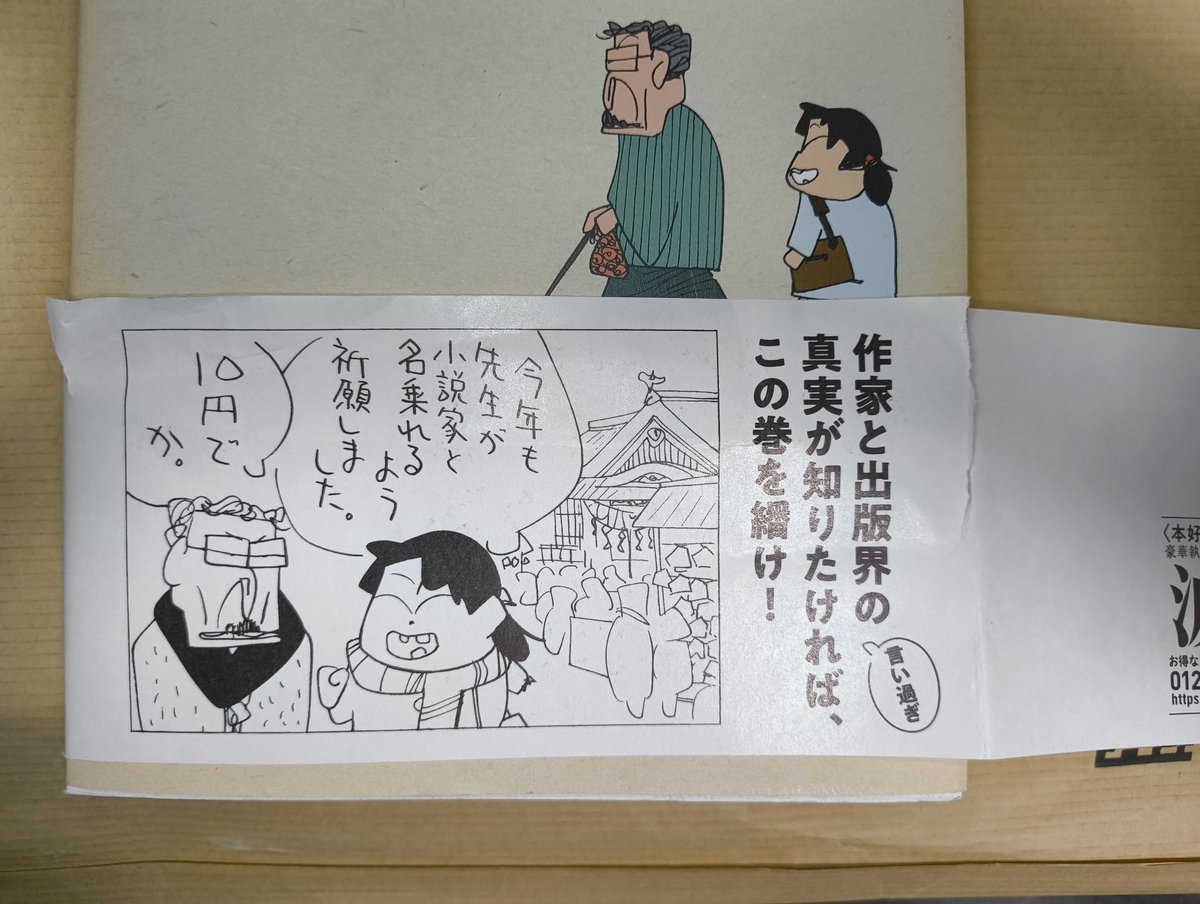 作家と出版界の
真実が知りたければ、
この巻を繙け！
言い過ぎ
今年も
先生が
小説家と
名乗れる
よう
祈願しま
した。
10円で
か。
〈本好
豪華執
波
お得な
012
https